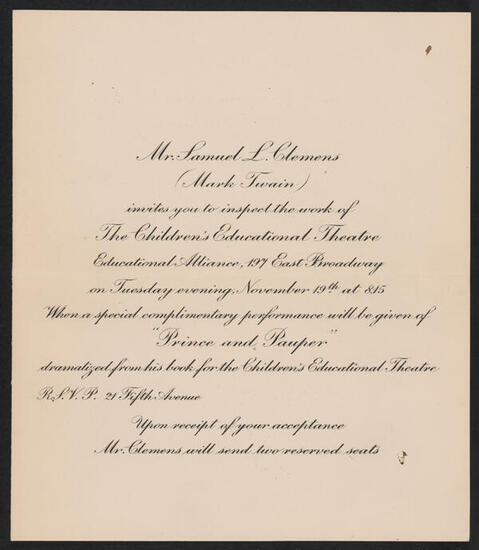 Mr. Samuel L. Clemens
(Mark Twain)
invites you to inspect the work of
The Children's Educational Theatre
Educational Alliance, 197 East Broadway
on Tuesday evening, November 19th at 8.15
When a special complimentary performance will be given of
"Prince and Pauper"
dramatized from his book for the Children's Educational Theatre
R.S.V.P. 21 Fifth Avenue
Upon receipt of your acceptance
Mr. Clemens will send two reserved seats